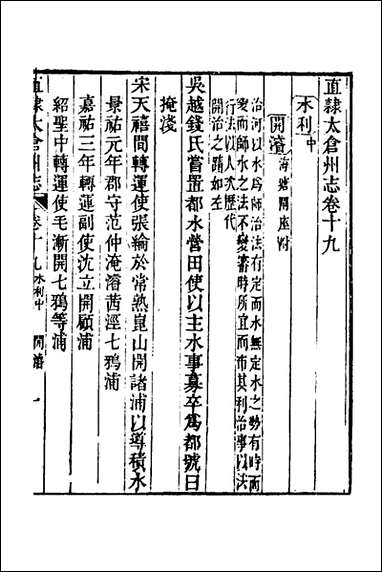 直隸太倉州志卷十九
水利中
開濬 海塘閘座附
治河以水爲師治法有定而水無定水之勢有時而
變而師水之法不變審時所宜而布其利治事以法
行法以人次歷代
開治之蹟如左
吳越錢氏嘗置都水營田使以主水事募卒爲都號曰
撩淺
宋天禧間轉運使張綸於常熟崑山開諸浦以導積水
景祐元年郡守范仲淹濬茜涇七鴉浦
嘉祐三年轉運副使沈立開顧浦
紹聖中轉運使毛漸開七鴉等浦
直隸太倉州志 卷十九 水利中 開濬 一